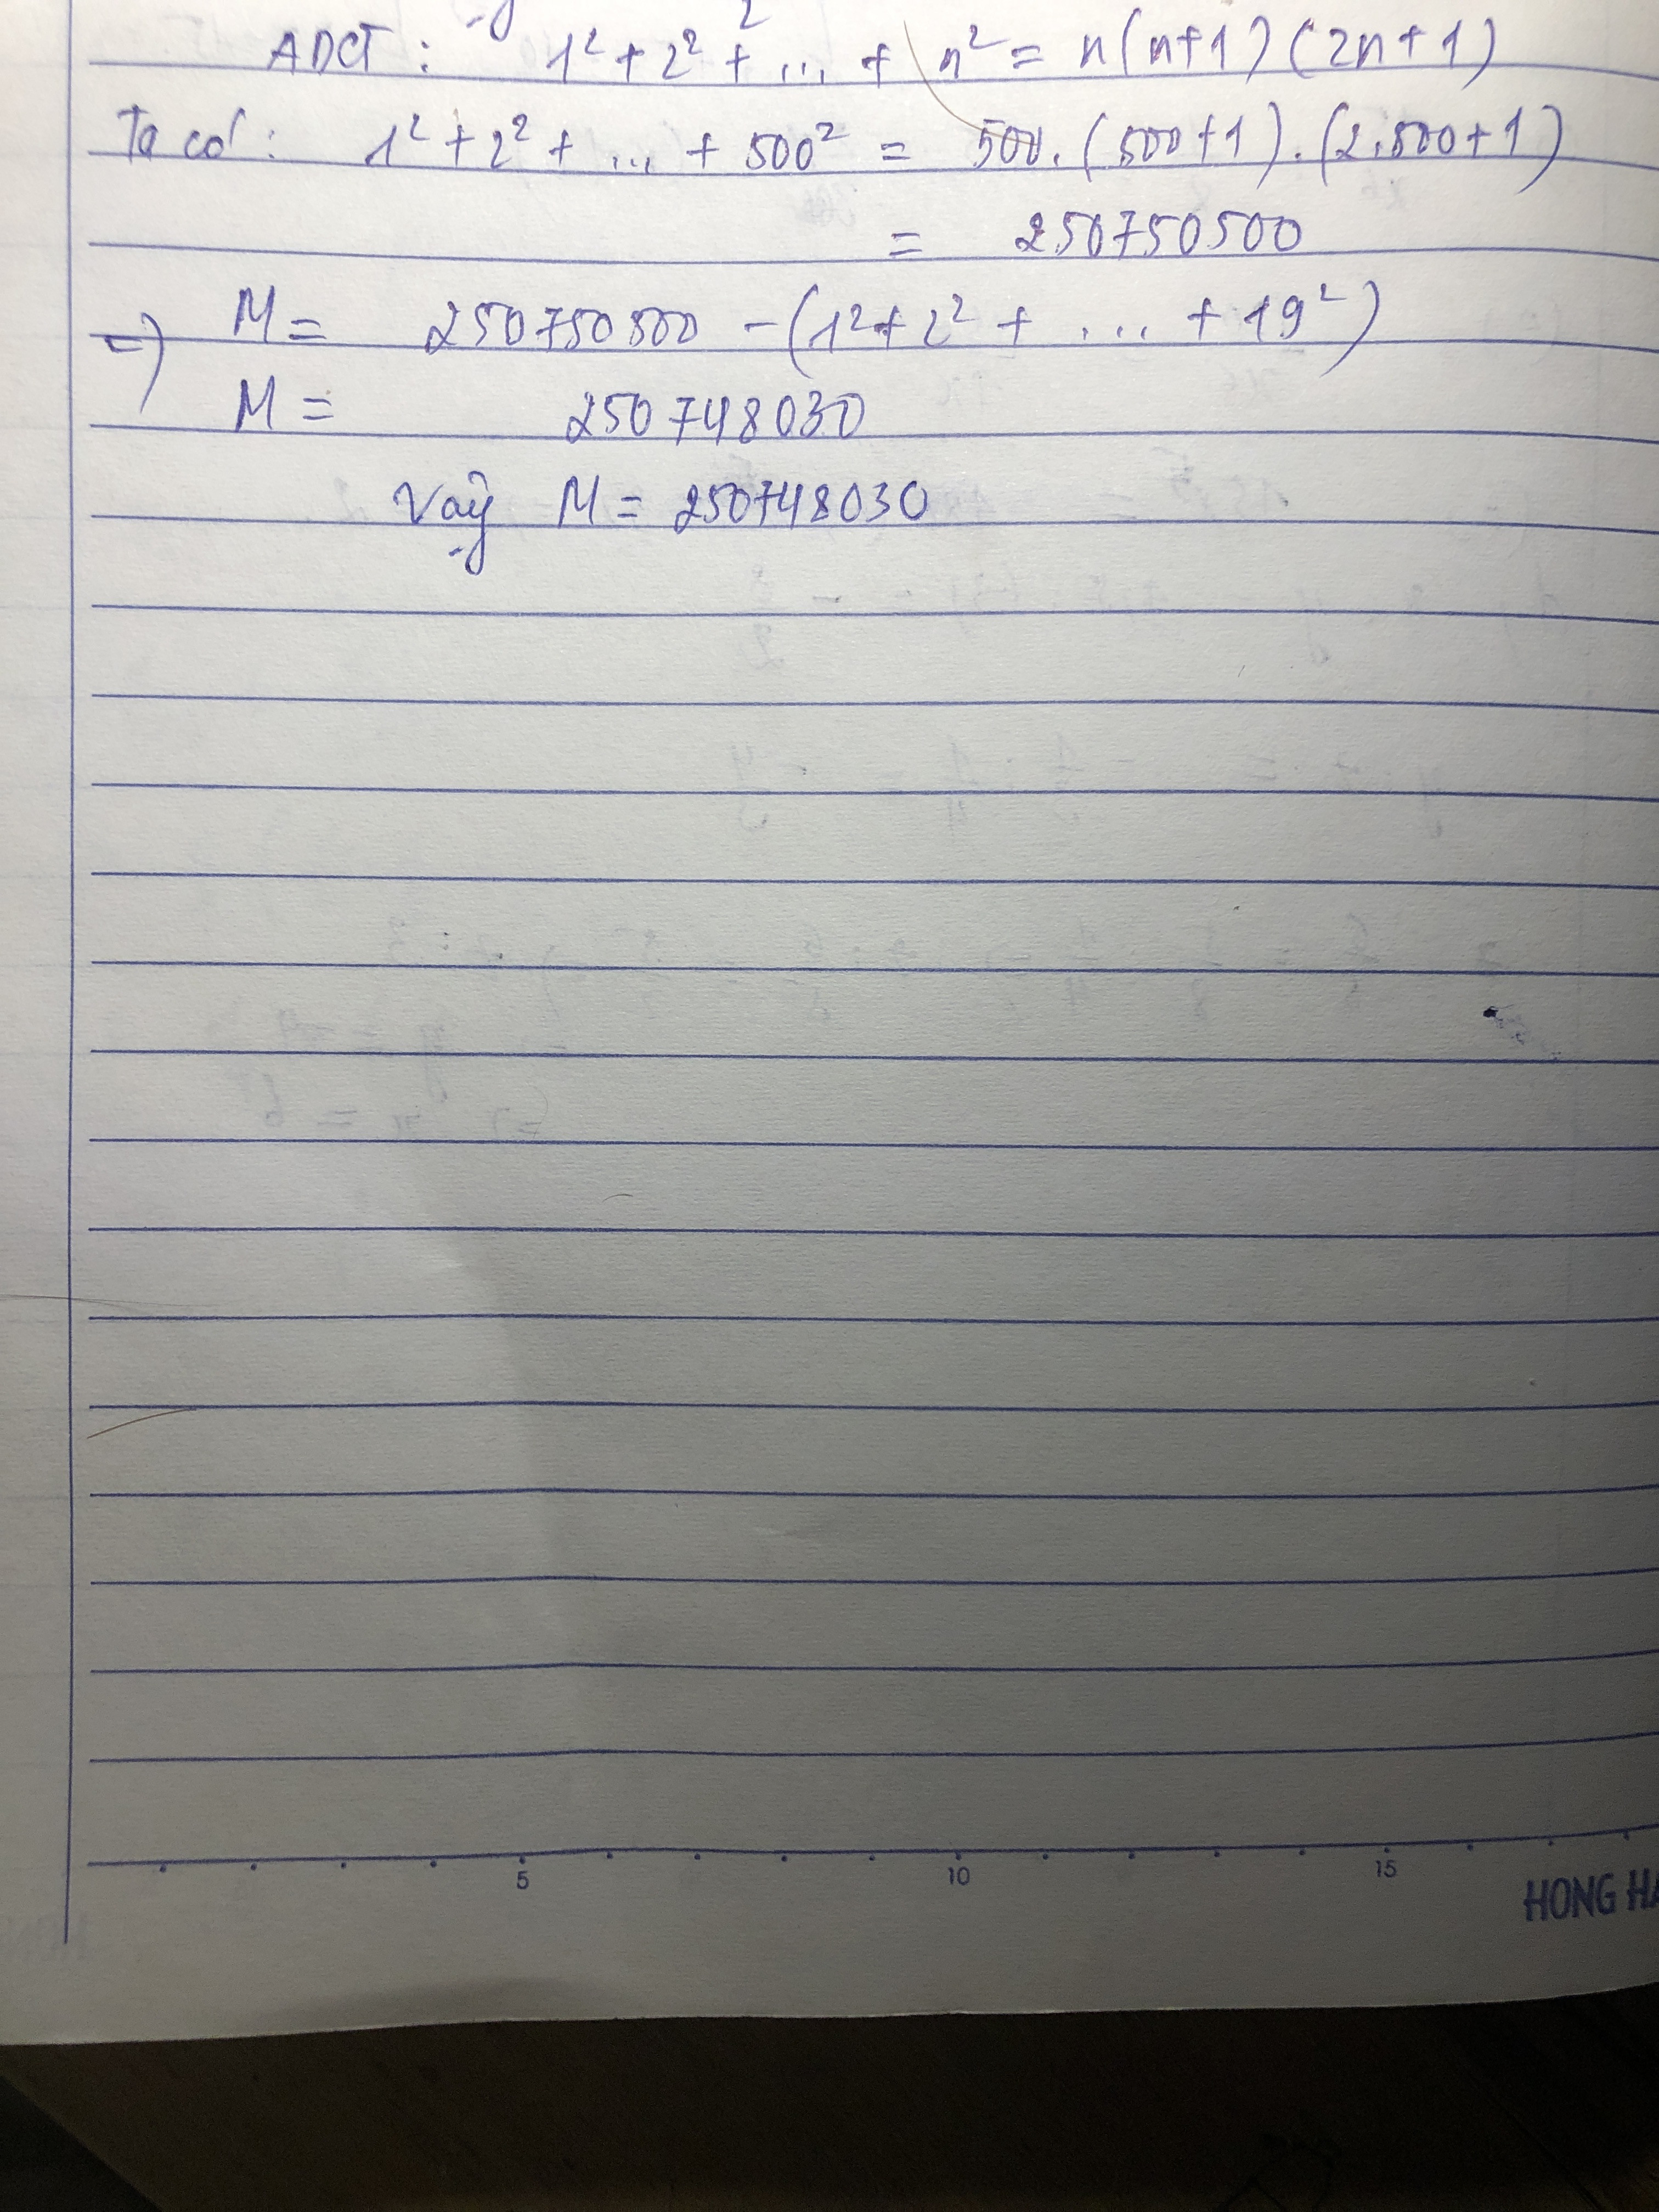 ADCT : 1² + 2² + ... + n² = n(n+1)(2n+1)
Ta có : 1² + 2² + ... + 500² = 500.(500+1).(2.500+1)
= 250750500
=> M = 250750500 - (1² + 2² + ... + 19²)
M = 250748030
Vậy M = 250748030
5 10 15
HONG HA